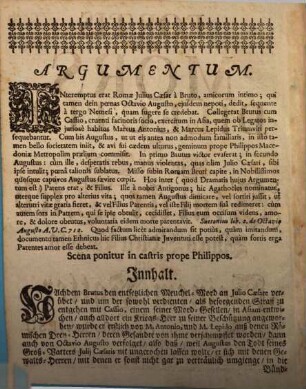 ARGUMENTUM.
INteremptus erat Romæ Julius Cæsar à Bruto, amicorum intimo; qui
tamen dein pœnas Octavio Augusto, ejusdem nepoti, dedit, sequante
à tergo Nemesi, quam fugere se credebat. Collegerat Brutus cum
Cassio, criminis socio, exercitum in Asia, quem ob
habitus Marcus Antonius, & Marcus Lepidus Triumviri per-
sequebantur. Cum his Augustus, ut ut eis antea non admodum familiaris, in isto ta-
men bello societatem iniit, & avi sui cædem ulturus, geminum prope Philippos Mace-
doniæ Metropolim prælium commisit. In primo Brutus victor evasit; in secundo
Augustus: cum ille, desperatis rebus, manus violentas, quas olim Julio Cæsari, sibi
ipse intulit; parsâ talionis sublatus. Misso sibi Romam fuere capite, in Nobilissimos
quósque captivos Augustus sæviit. Hos inter (quod Dramatis hujus Argumen-
tum est) Patens erat, & Filius. Ille à nobis Antigonus, hic Agathocles nominatur,
uterque supplex pro alterius vita; quos tamen Augustus dimicare, vel sortiri jussit, ut
alterutri vita gratis foret, & vel Filius Parentis, vel iste Filii mortem sui redimeret: cum
autem fors in Patrem, qui se ipse obtulit, cecidisset, Filius eum occisum videns, amo-
re, & dolore obrutus, voluntariâ eâdem morte
Augusto A.U.C. 712. Quod factum licet admirandum sit potius, quàm imitandum,
documento tamen Ethnicus hic Filius Christianæ Juventuti esse potest, quàm fortis erga
Parentes amor esse debeat.
Scena ponitur in castris prope Philippos.
Innhalt.
NAchdem Brutus den entsetzlichen Meuchel-Mord an Julio Cæsare ver-
übet / und um der sowohl verdienten / als bevorstehenden Straf zu
entgehen mit Cassio, einem seiner Mord-Gesellen / in Asiam entwi-
chen / auch alldort ein Kriegs-Heer zu seiner Beschützung angewor-
ben / wurde er endlich von M. Antonio, und M. Lepido aus denen Rö-
mischen Drey-Herren / dem Gesandten von ihme verschimpfet worden / dann
auch von Octavio Augusto verfolget / also daß / weil Augustus den Todt seines
Groß-Vatters Julij Cæsaris nit ungerochen lassen wolte / er sich mit denen Ge-
walts-Herren / mit denen er sonst nicht gar zu verträulich umgienge / in die
Bünd-